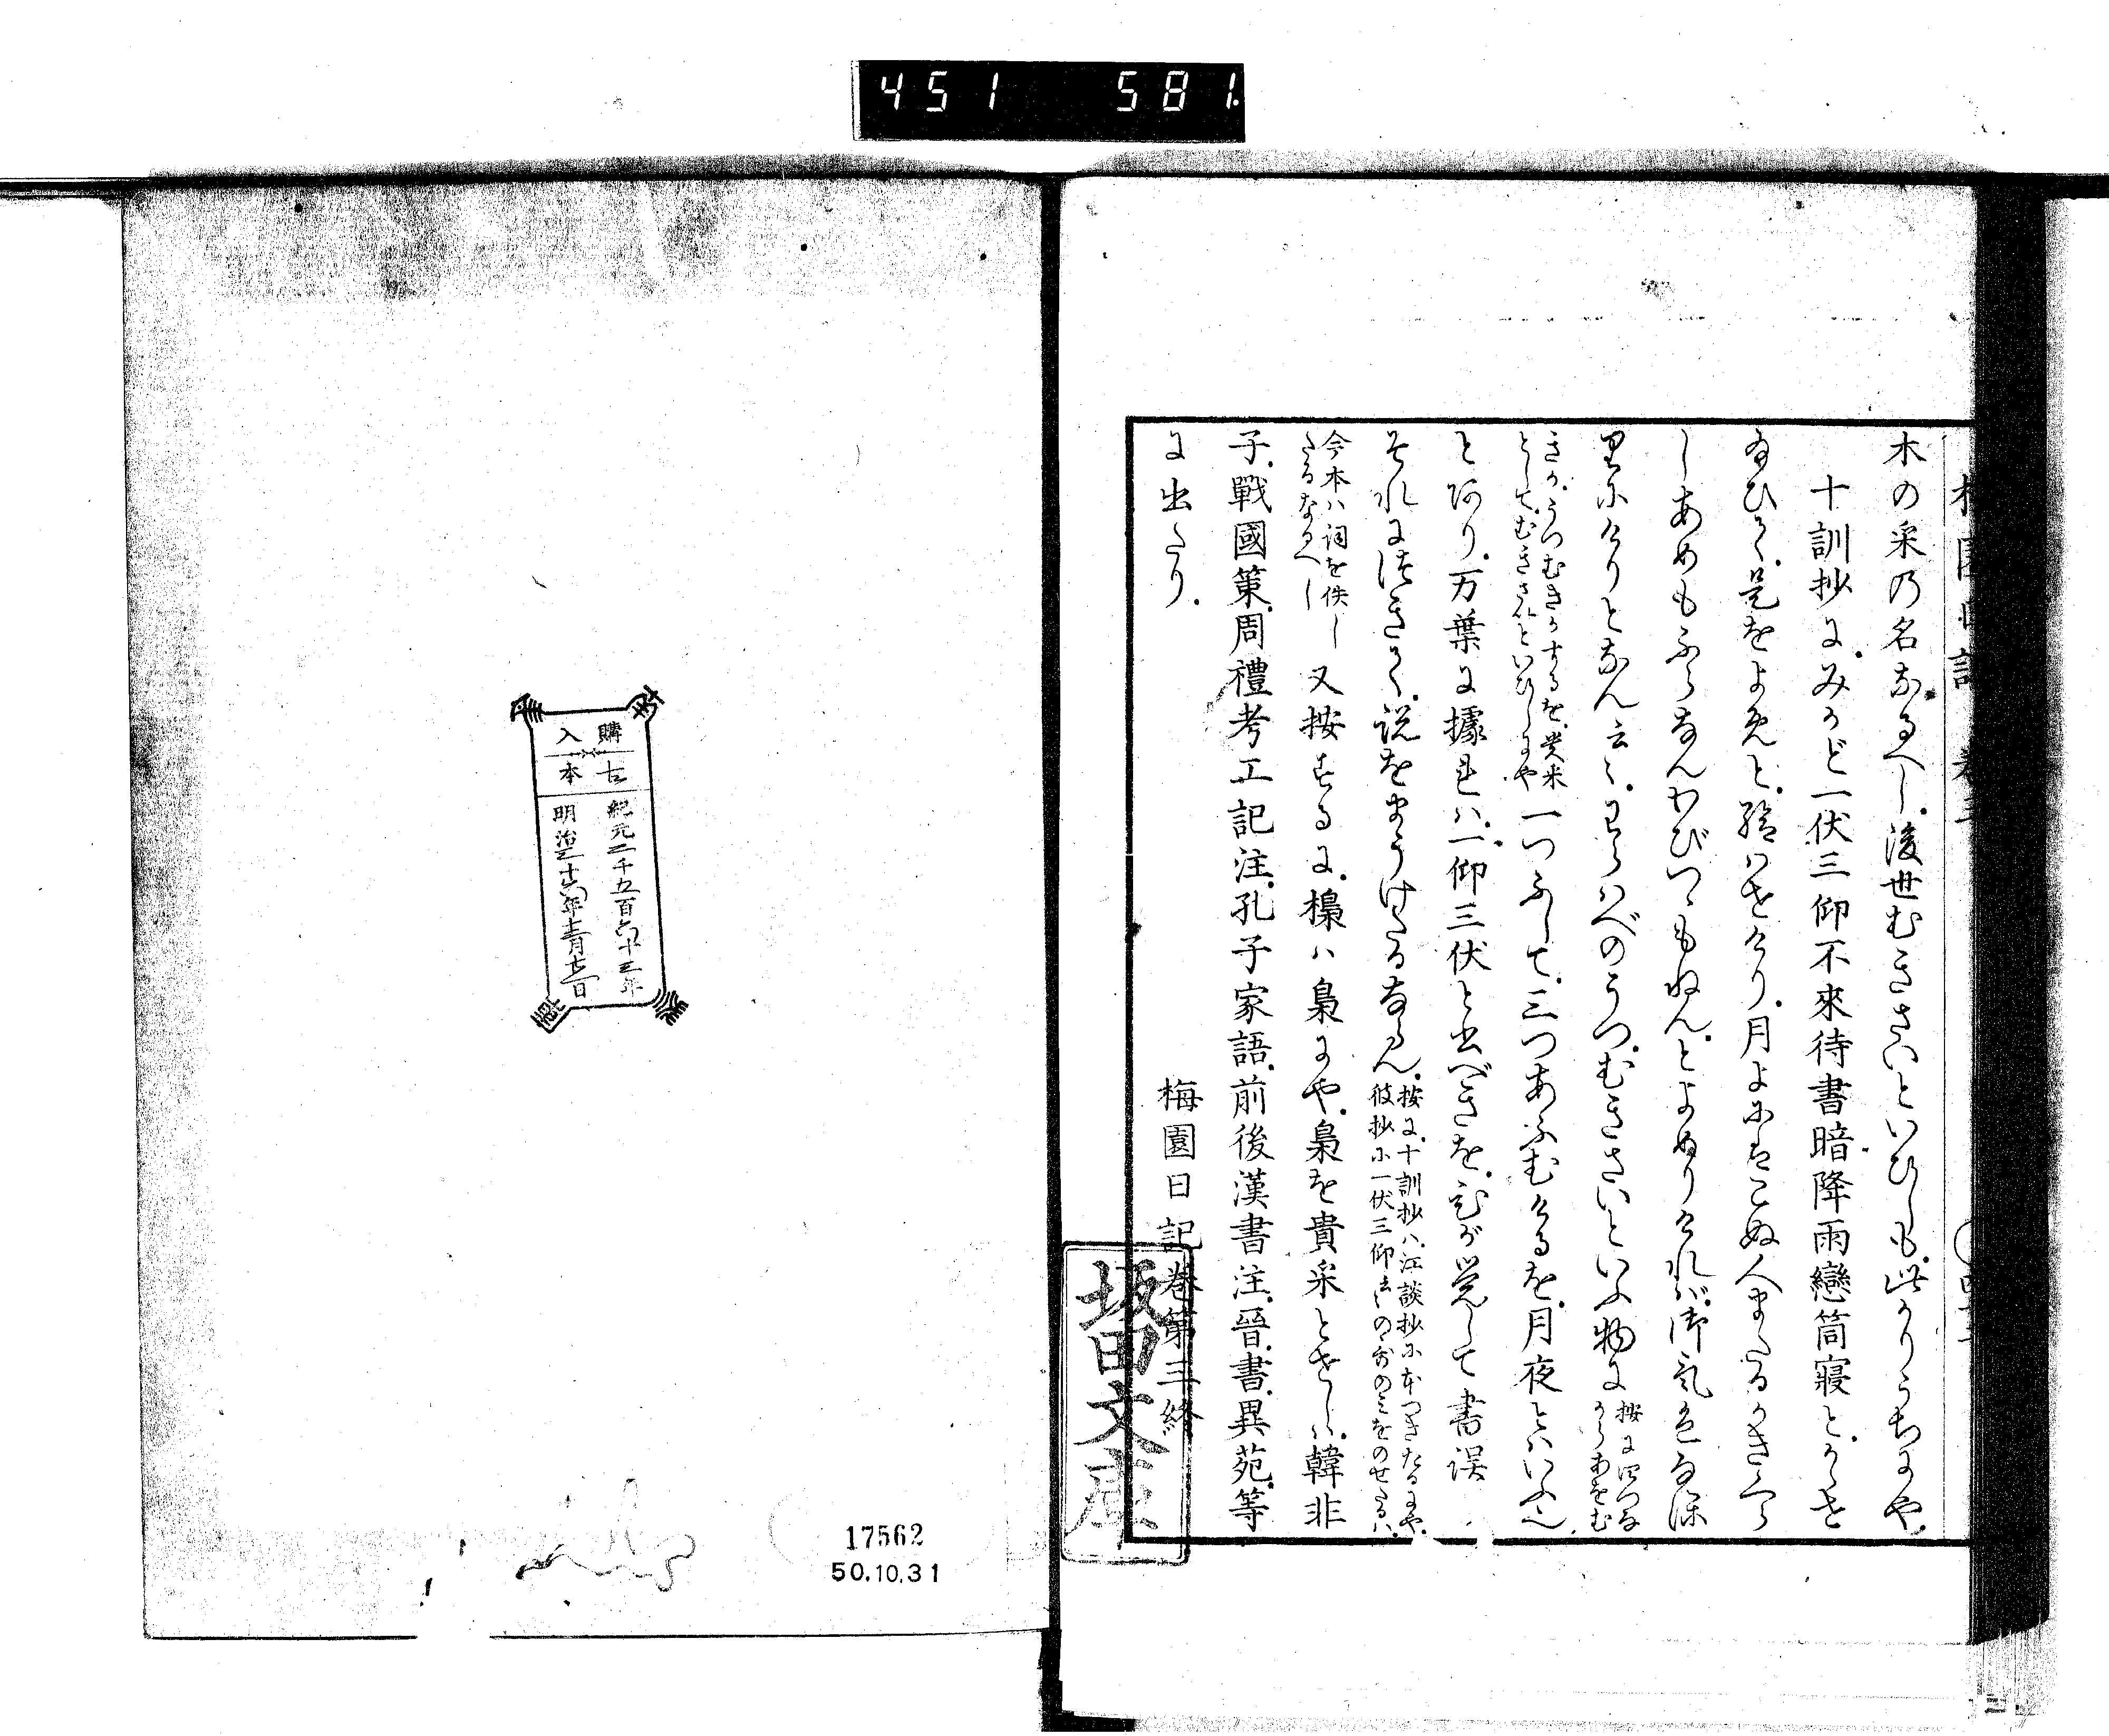 451 581
木の采乃名なるへし。後世むきさいといひしも。此かりうちにや。
十訓抄に。みかど一伏三仰不來待書暗降雨戀筒寢と。かゝせ
給ひて。是をよめと。給はせけり。月よにはこぬ人またるかきくら
しあめもふらなんわびつゝもねん。とよめりければ。御氣色なほ
りにけりとなん云々。わらはべのうつ。むきさいといふ物に
按に四つな
からあをむ
きか。うつむきかするを。貴采
としてむきさいといひしにや
一つふして。三つあふむけるを。月夜とはいふ也。
とあり。万葉に據れハ。一仰三伏と出べきを。ひが覚して書誤
それにつきて。説をまうけたるならん。
按に。十訓抄ハ。江談抄に本つきたるにや。
彼抄に一伏三仰云々のうたのミをのせたるハ。
今本ハ詞を佚し
たるなるへし
又按するに。樗ハ梟にや。梟を貴采とせしハ。韓非
子。戰國策。周禮考工記注。孔子家語。前後漢書注。晉書。異苑。等
に出たり。
梅園日記卷第三終
坂田文庫
購入
古本
紀元二千五百六十三年
明治三十六年
17562
50.10.31